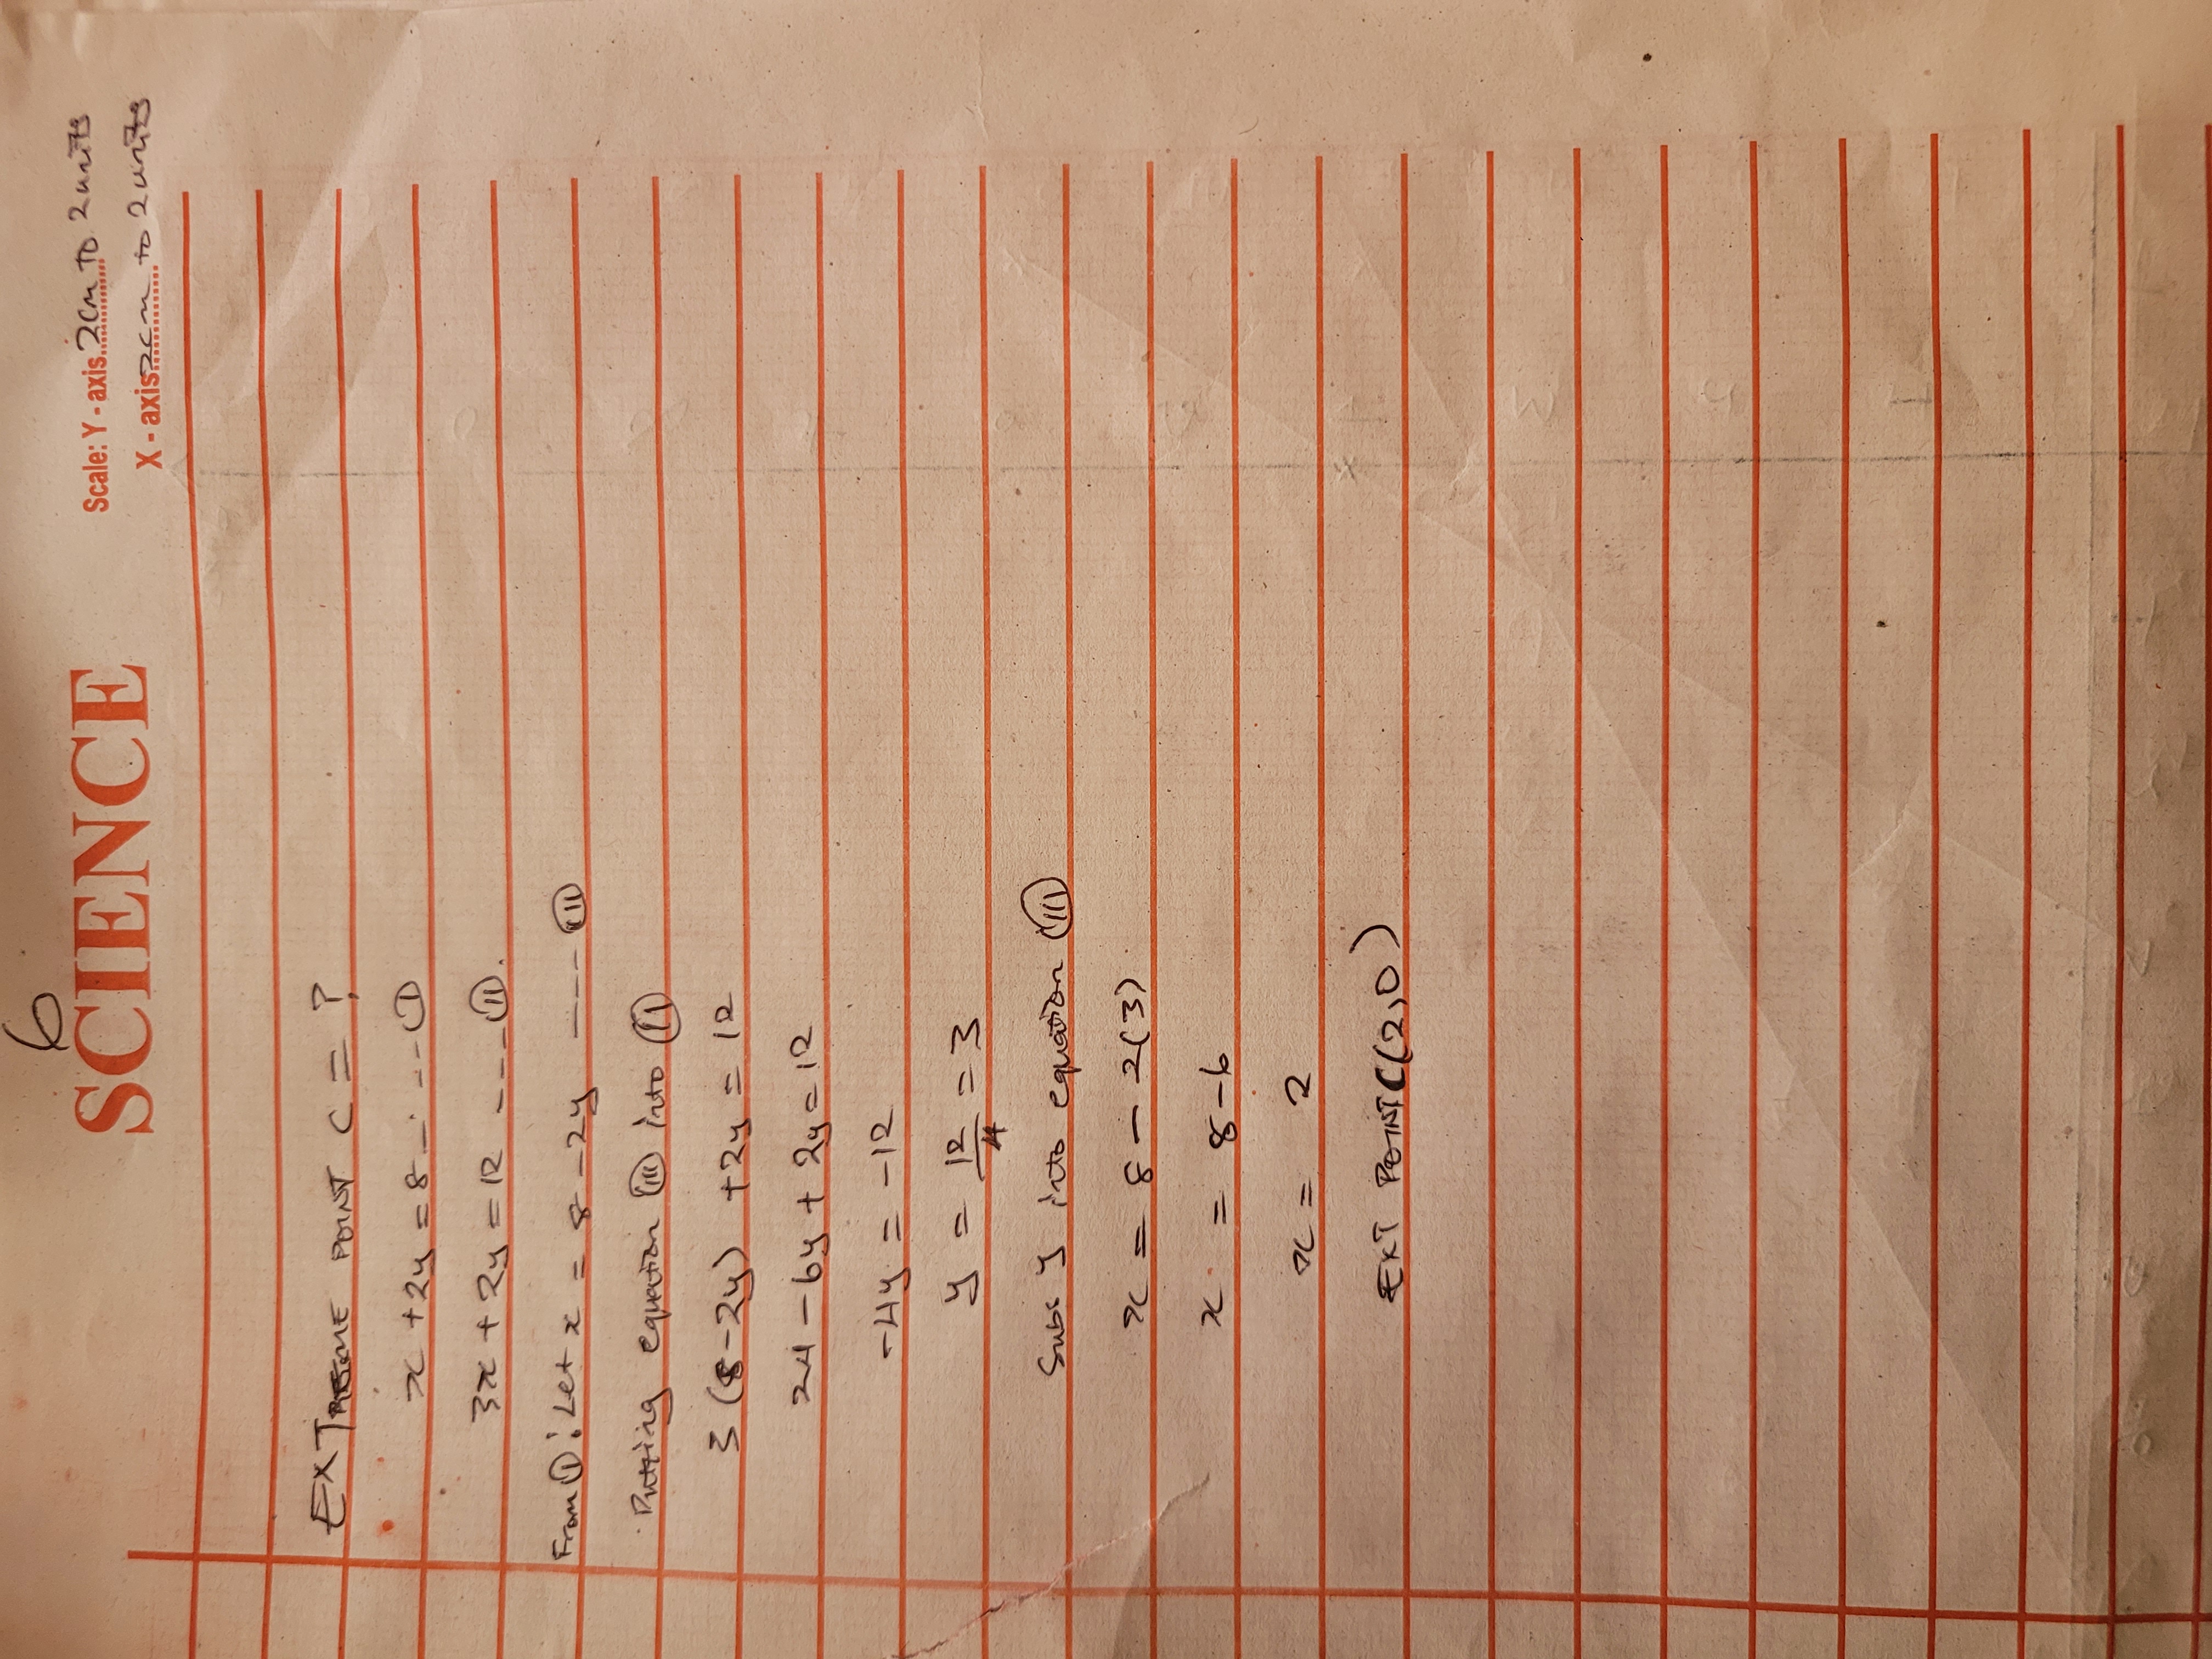 6
SCIENCE
Scale: Y - axis 2cm to 2 units
X - axis 2cm to 2 units
EXTREME POINT C = ?
x + 2y = 8 --- (I)
3x + 2y = 12 --- (II).
From (I): Let x = 8 - 2y --- (III)
Putting equation (III) into (II)
3(8-2y) + 2y = 12
24 - 6y + 2y = 12
-4y = -12
y = 12/4 = 3
Subs y into equation (III)
x = 8 - 2(3)
x = 8 - 6
x = 2
EXT POINT C(2,0)